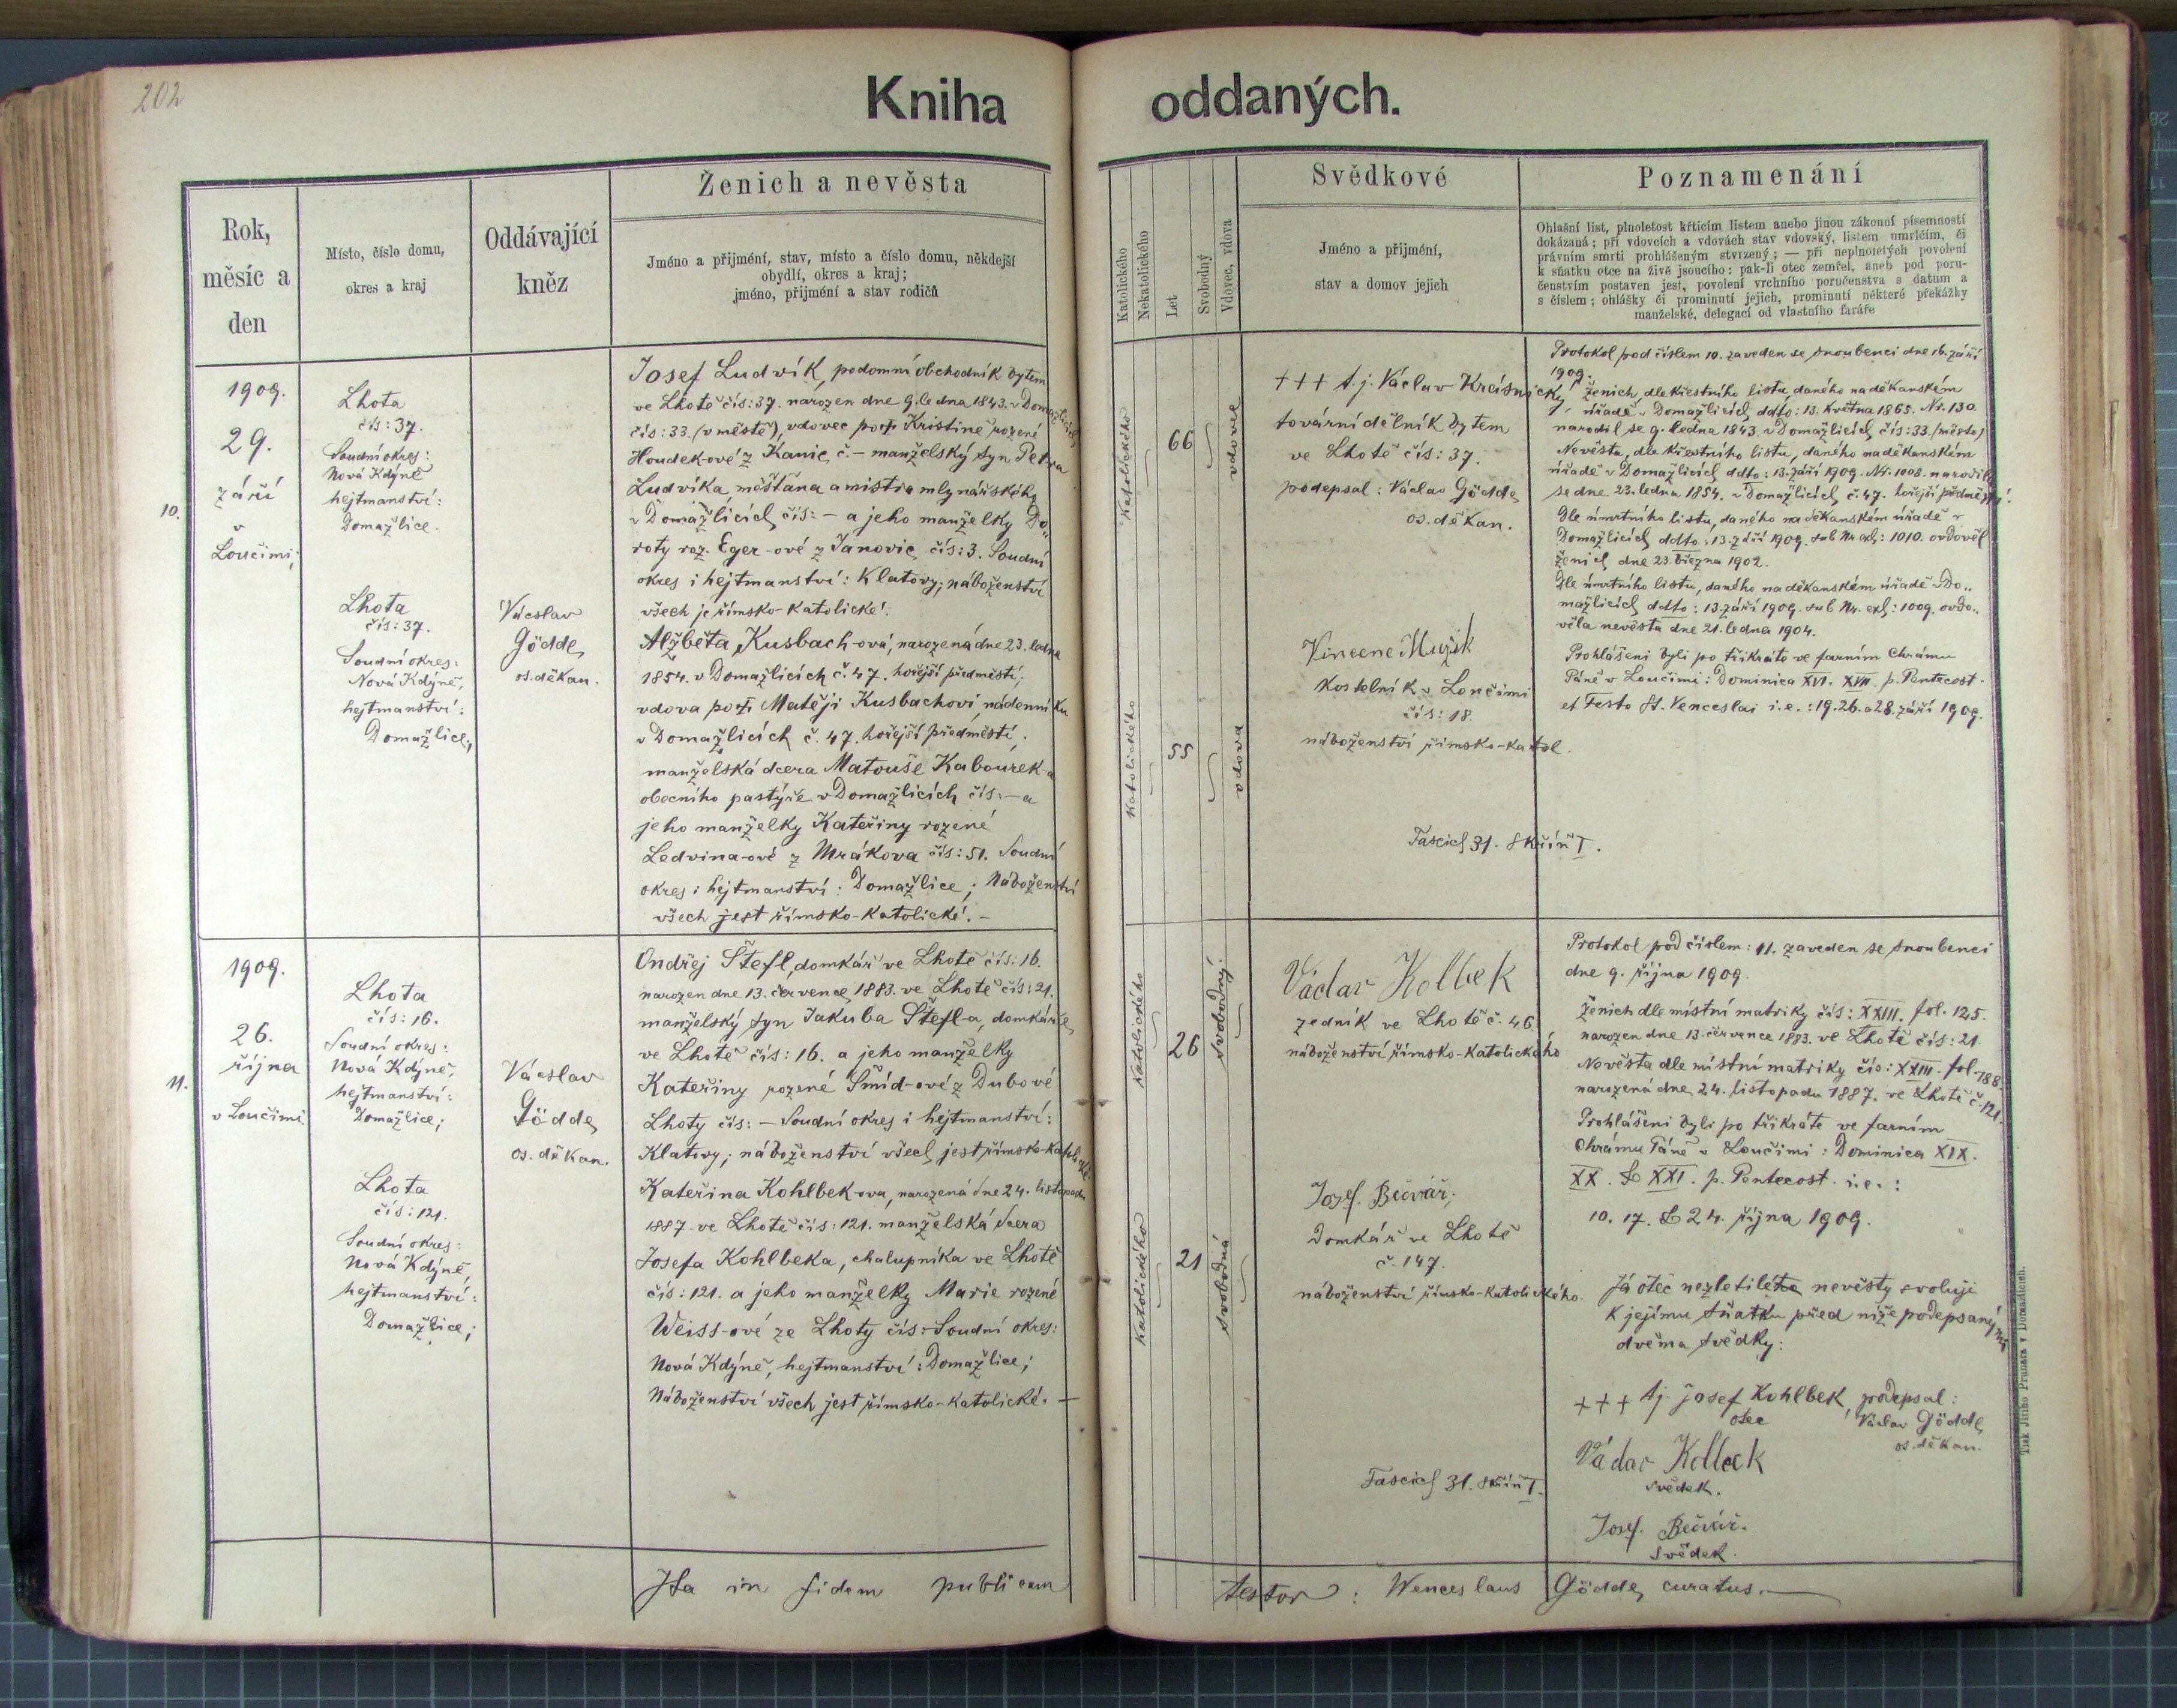 202
Kniha oddaných.
Rok,
měsíc a
den
Místo, číslo domu,
okres a kraj
Oddávající
kněz
Ženich a nevěsta
Jméno a přijmení, stav, místo a číslo domu, někdejší
obydlí, okres a kraj;
jméno, přijmení a stav rodičů
Katolického
Nekatolického
Let
Svobodný
Vdovec, vdova
Svědkové
Jméno a přijmení,
stav a domov jejich
Poznamenání
Ohlašní list, plnoletost křticím listem anebo jinou zákonní písemností
dokázaná; při vdovcích a vdovách stav vdovský, listem umrlčím, či
právním smrti prohlášeným stvrzený; — při neplnoletých povolení
k sňatku otce na živě jsoucího: pak-li otec zemřel, aneb pod poru-
čenstvím postaven jest, povolení vrchního poručenstva s datum a
s číslem; ohlášky či prominutí jejich, prominutí některé překážky
manželské, delegací od vlastního faráře
10.
1909.
29.
září
v
Loučimi;
Lhota
čís: 37.
Soudní okres:
Nová Kdýně
hejtmanství:
Domažlice.
Lhota
čís: 37.
Soudní okres:
Nová Kdýně,
hejtmanství:
Domažlice;
Václav
Gödde,
os. děkan.
Josef Ludvík, podomní obchodník bytem
ve Lhotě čís: 37. narozen dne 9. ledna 1843. v Domažlicích
čís: 33. (v městě), vdovec po † Kristině rozené
Houdek-ové z Kanic č. – manželský syn Petra
Ludvíka, měšťana a mistra mlynářského
v Domažlicích čís: – a jeho manželky Do„
roty roz. Eger-ové z Janovic čís: 3. Soudní
okres i hejtmanství: Klatovy; náboženství
všech je římsko-katolické.
Alžběta Kusbach-ová, narozená dne 23. ledna
1854. v Domažlicích č. 47. hořejší předměstí;
vdova po † Matěji Kusbachovi, nádenníku
v Domažlicích č. 47. hořejší předměstí;
manželská dcera Matouše Kabourek-a
obecního pastýře v Domažlicích čís: – a
jeho manželky Kateřiny rozené
Ledvina-ové z Mrákova čís: 51. Soudní
okres i hejtmanství: Domažlice; Náboženství
všech jest římsko-katolické. –
Katolického
66
vdovec
Katolického
55
vdova
+++ t. j. Václav
tovární dělník bytem
ve Lhotě čís: 37.
podepsal: Václav Gödde,
os. děkan.
Vincenc Mužík
Kostelník v Loučimi
čís: 18.
náboženství římsko-katol.
Fascicl 31. Skříň I.
Protokol pod číslem 10. zaveden se snoubenci dne 16. září
1909.
ženich, dle křestního listu, daného na děkanském
úřadě v Domažlicích ddto: 13. května 1865. Nr. 130.
narodil se 9. ledna 1843. v Domažlicích čís: 33. (město)
Nevěsta, dle křestního listu, daného na děkanském
úřadě v Domažlicích ddto: 13. září 1909. Nr. 1008. narodila
se dne 23. ledna 1854. v Domažlicích č. 47. hořejší předměstí.
Dle úmrtního listu, daného na děkanském úřadě v
Domažlicích ddto: 13. září 1909. sub Nr. exh: 1010. ovdověl
ženich dne 23. března 1902.
Dle úmrtního listu, daného na děkanském úřadě v Do„
mažlicích ddto: 13. září 1909. sub Nr. exh: 1009. ovdo„
věla nevěsta dne 21. ledna 1904.
Prohlášeni byli po třikráte ve farním Chrámu
Páně v Loučimi: Dominica XVI. XVII. p. Pentecost.
et Festo St. Venceslai i. e.: 19. 26. a 28. září 1909.
11.
1909.
26.
října
v Loučimi
Lhota
čís: 16.
Soudní okres:
Nová Kdýně,
hejtmanství:
Domažlice;
Lhota
čís: 121.
Soudní okres:
Nová Kdýně,
hejtmanství:
Domažlice;
Václav
Gödde,
os. děkan.
Ondřej Štefl, domkář ve Lhotě čís: 16.
narozen dne 13. července 1883. ve Lhotě čís: 21.
manželský syn Jakuba Štefl-a, domkáře,
ve Lhotě čís: 16. a jeho manželky
Kateřiny rozené Šmíd-ové z Dubové
Lhoty čís: – Soudní okres i hejtmanství:
Klatovy; náboženství všech jest římsko-katolické.
Kateřina Kohlbek-ova, narozená dne 24. listopadu
1887. ve Lhotě čís: 121. manželská dcera
Josefa Kohlbeka, chalupníka ve Lhotě
čís: 121. a jeho manželky Marie rozené
Weiss-ové ze Lhoty čís: Soudní okres:
Nová Kdýně, hejtmanství: Domažlice;
Náboženství všech jest římsko-katolické. –
Katolického
26
svobodný.
Katolického
21
svobodná
Václav Kolbek
zedník ve Lhotě č. 46.
náboženství římsko-katolického
Josef. Bečvář,
Domkář ve Lhotě
č. 147.
náboženství římsko-katolického.
Fascicl 31. Skříň I.
Protokol pod číslem: 11. zaveden se snoubenci
dne 9. října 1909.
ženich dle místní matriky čís: XXIII. fol. 125.
narozen dne 13. července 1883. ve Lhotě čís: 21.
Nevěsta dle místní matriky čís: XXIII. fol. 188.
narozená dne 24. listopadu 1887. ve Lhotě č. 121.
Prohlášeni byli po třikráte ve farním
Chrámu Páně v Loučimi: Dominica XIX.
XX. & XXI. p. Pentecost. i. e.:
10. 17. & 24. října 1909.
Já otec nezletilé nevěsty svoluji
k jejímu sňatku před níže podepsanými
dvěma svědky:
+++ tj. Josef Kohlbek, podepsal:
otec Václav Gödde,
os. děkan.
Václav Kolbek
svědek.
Josef. Bečvář.
svědek.
Ita in fidem publicam testor: Wenceslaus Gödde, curatus. —
Tisk Jiřího Prunara v Domažlicích.